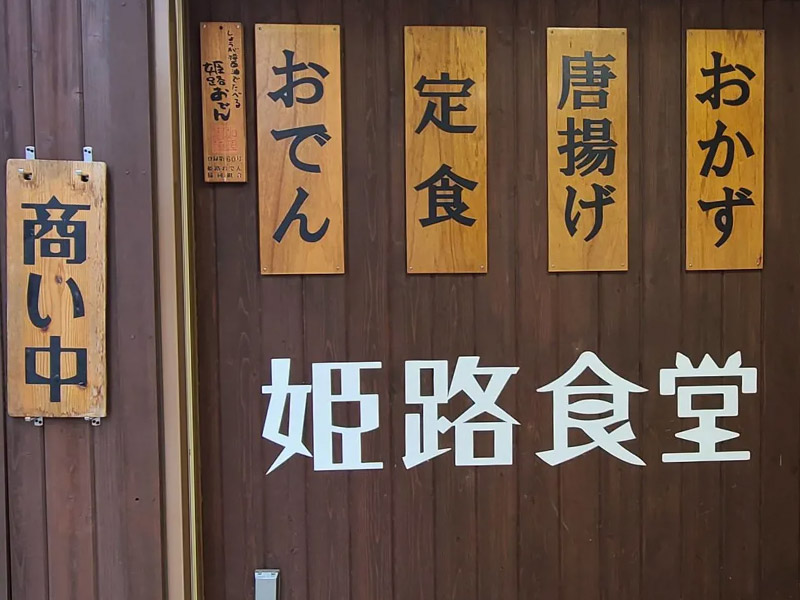 商い中
しょうが醤油でたべる
姫路おでん
おでん
定食
唐揚げ
おかず
姫路食堂